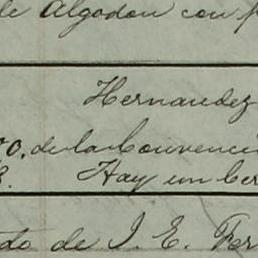 de Algodon con
Hernandez
00. de la Convenci
8. Hay un Cer
do de I. E. Fer